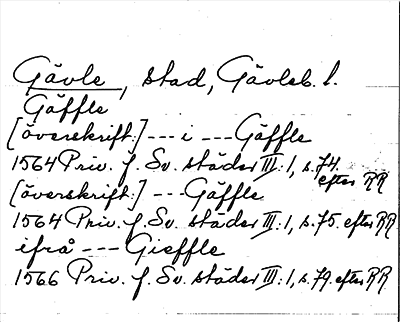 Gävle, stad, Gävleb. l.
Gäffle
[överskrift:] --- i --- Gäffle
1564 Priv. f. Sv. städer III: 1, s. 74. efter RR
[överskrift:] --- Gäffle
1564 Priv. f. Sv. städer III: 1, s. 75. efter RR
ifrå --- Gieffle
1566 Priv. f. Sv. städer III: 1, s. 79. efter RR